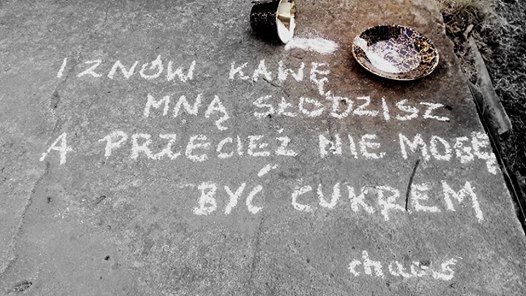 I ZNÓW KAWĘ
MNĄ SŁODZISZ
A PRZECIEŻ NIE MOGĘ
BYĆ CUKREM
chaos